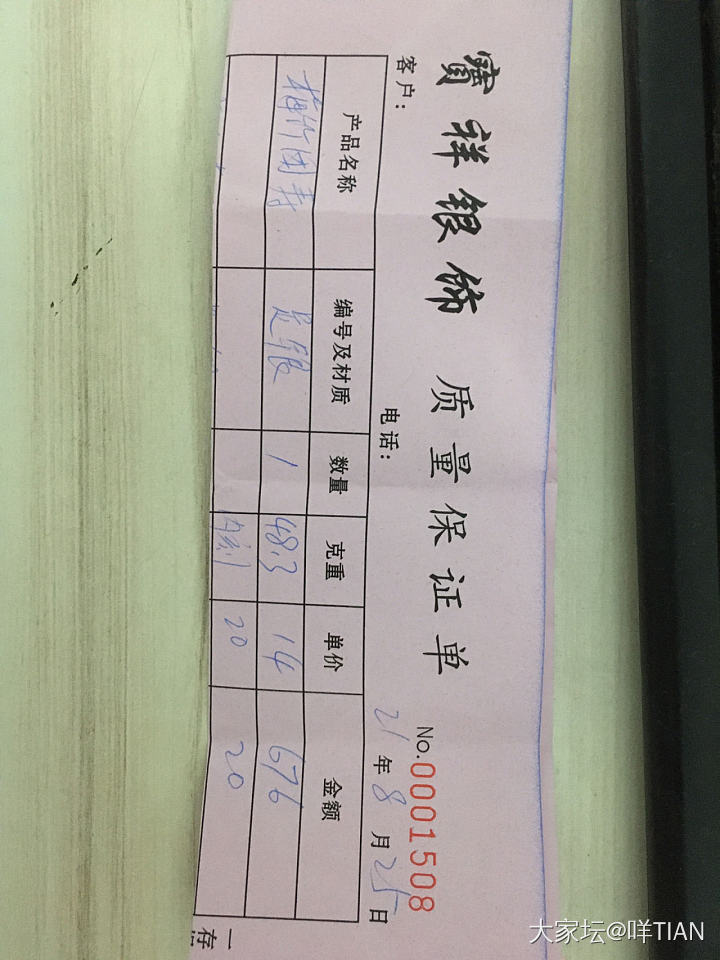 寶祥银饰 质量保证单
No.0001508
客户： 电话： 21年8月25日
产品名称 编号及材质 数量 克重 单价 金额
梅竹团寿 足银 1 48.3 14 676
内刻 20 20
一存
大家坛@咩TIAN